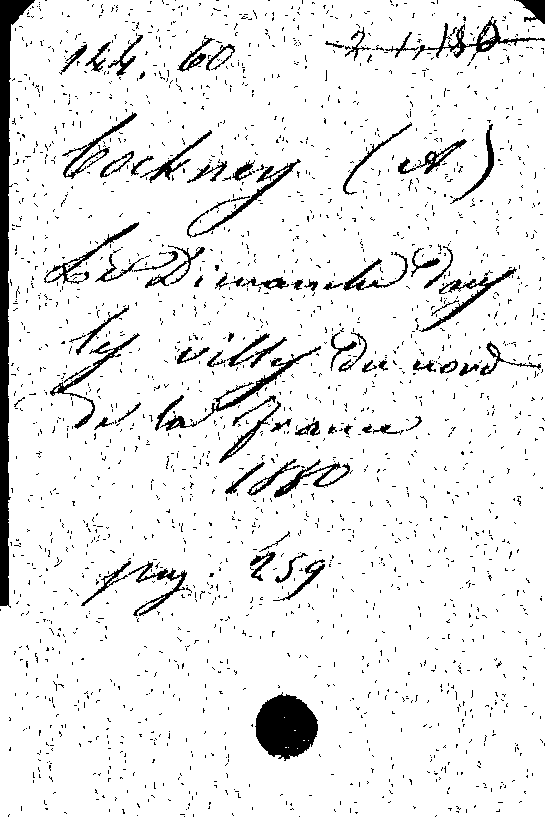 144. 60 2.1.180
Cockney (A)
Le Dimanche dans
les villes du nord
de la France
1880
pag. 259